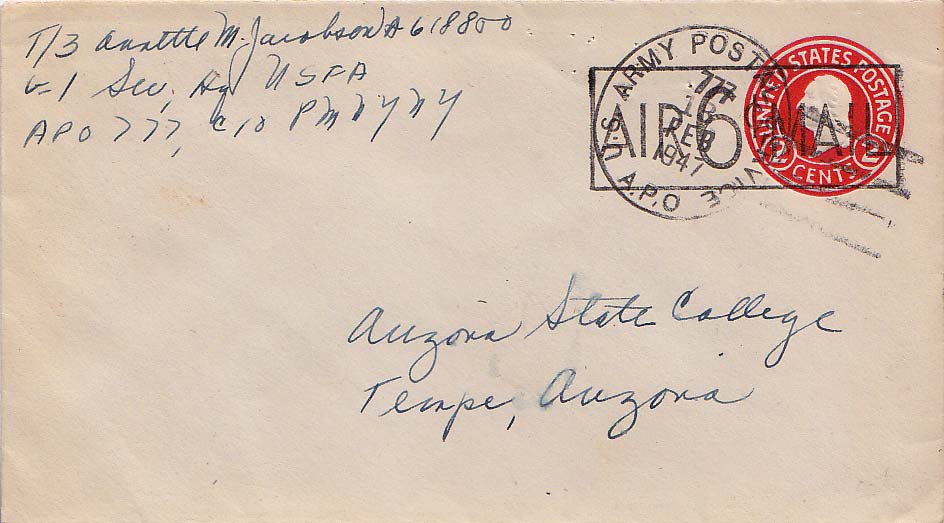 T/3 Annette M. Jacobson A618800
G-1 Sec, Hq USFA
APO 777, c/o PM NY NY
U.S. ARMY POSTAL SERVICE
777
16
FEB
1947
A.P.O
AIR MAIL
UNITED STATES POSTAGE
2 CENTS 2
Arizona State College
Tempe, Arizona